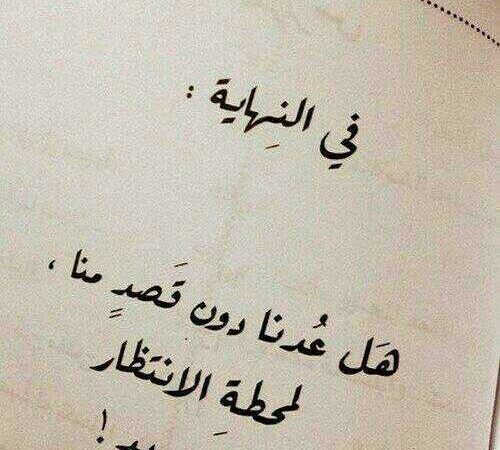 في النِهاية :
هَل عُدنا دون قَصدٍ منا ،
لمحطةِ الانتظار
!